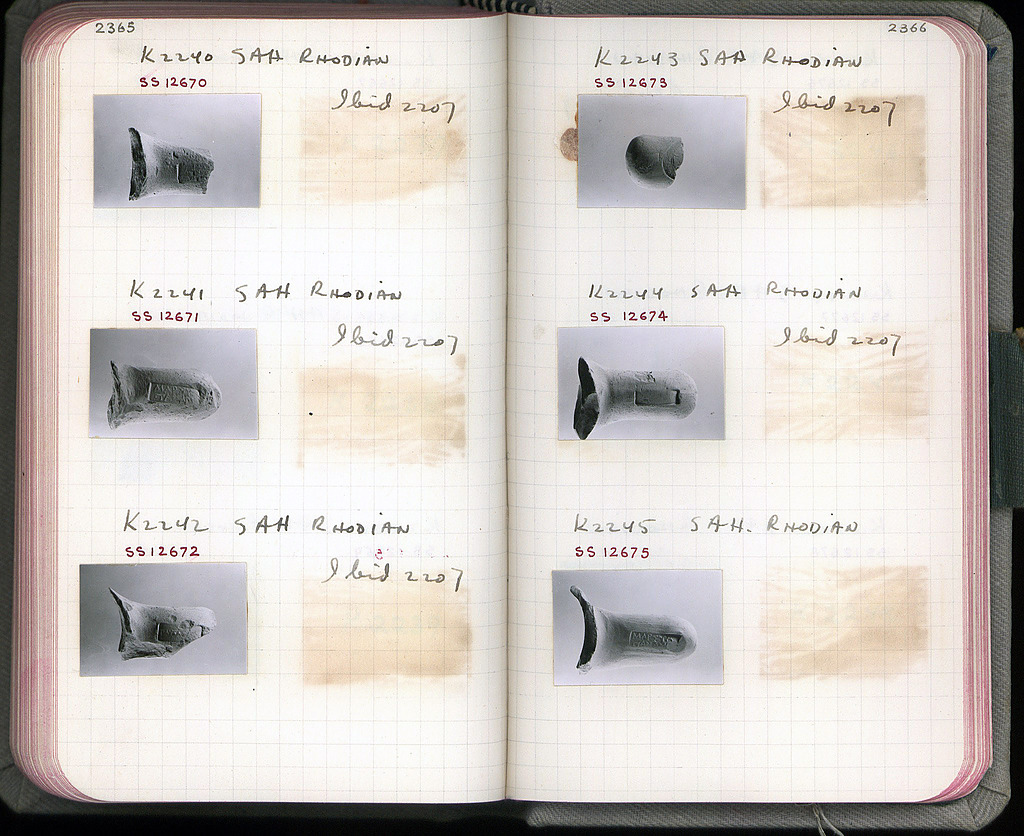 2365
K2240 SAH RHODIAN
SS 12670
Ibid 2207
K2241 SAH RHODIAN
SS 12671
Ibid 2207
K2242 SAH RHODIAN
SS 12672
Ibid 2207
2366
K2243 SAH RHODIAN
SS 12673
Ibid 2207
K2244 SAH RHODIAN
SS 12674
Ibid 2207
K2245 SAH. RHODIAN
SS 12675